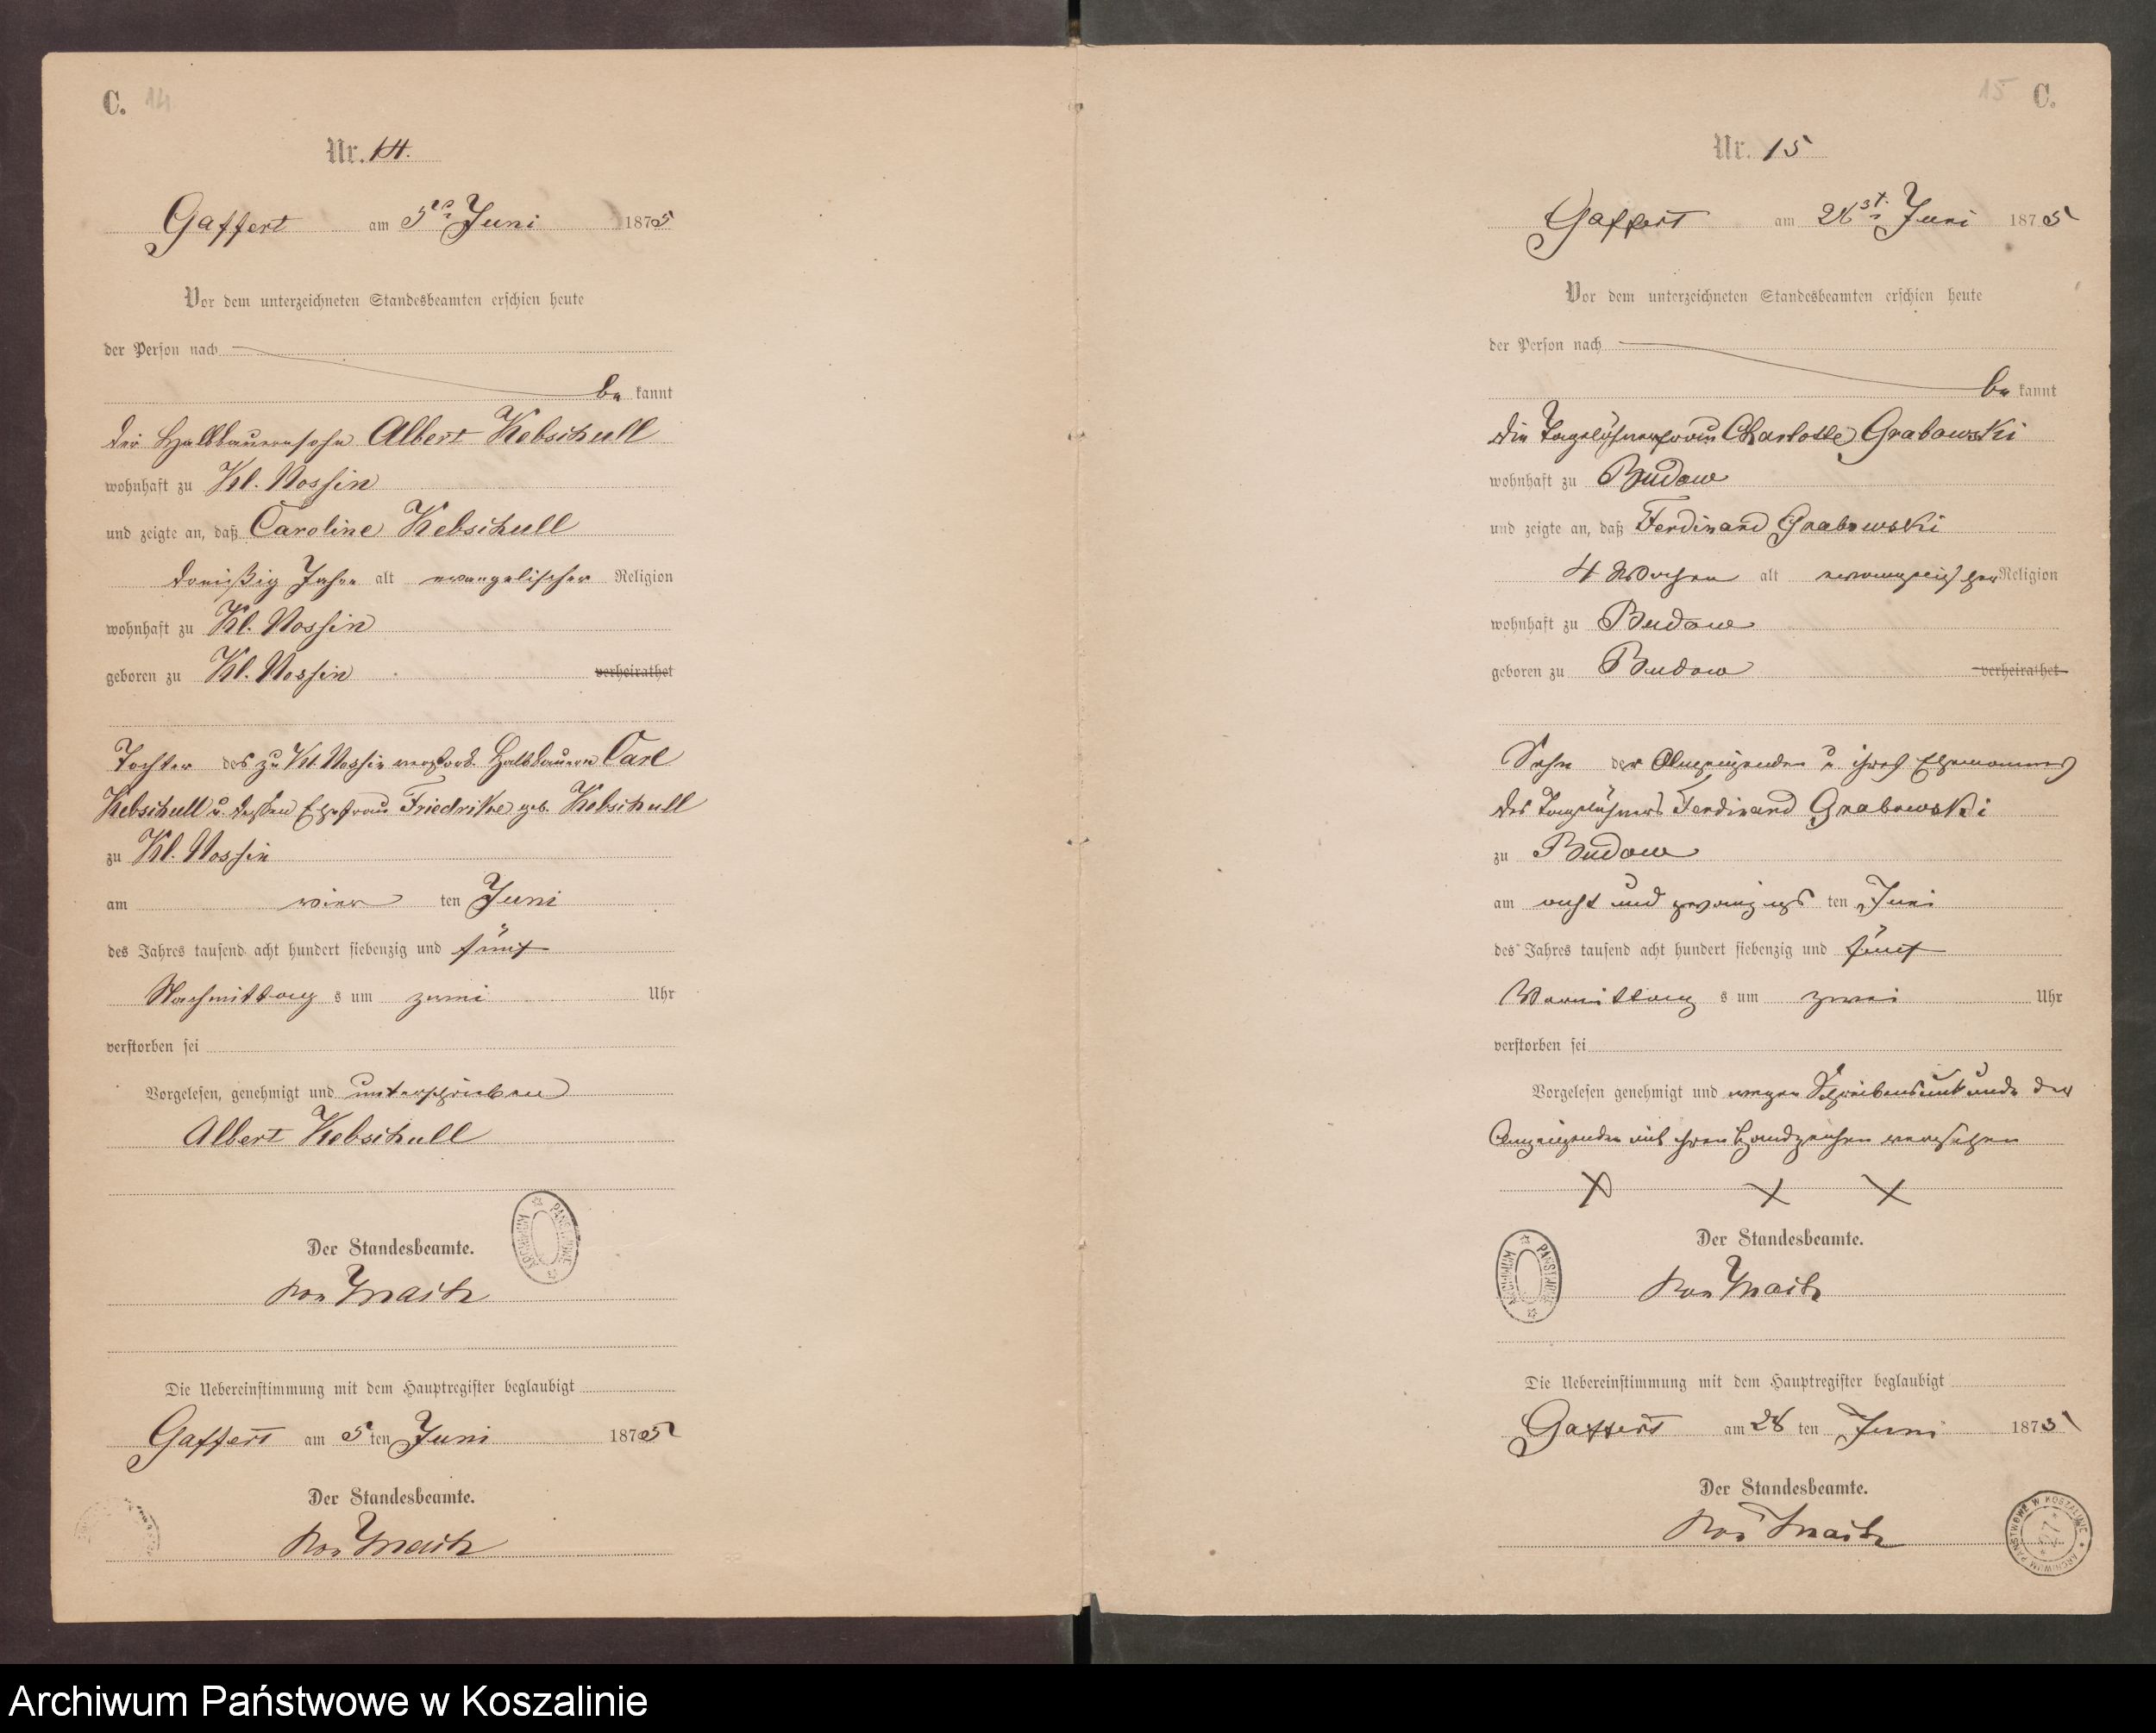 C. 14
Nr. 14.
Gaffert am 5ten Juni 1875
Vor dem unterzeichneten Standesbeamten erschien heute
der Person nach
be kannt
der Halbbauernsohn Albert Kebschull
wohnhaft zu Kl. Nossin
und zeigte an, daß Caroline Kebschull
dreißig Jahre alt evangelischer Religion
wohnhaft zu Kl. Nossin
geboren zu Kl. Nossin verheirathet
Tochter des zu Kl. Nossin verstorb. Halbbauern Carl
Kebschull u. dessen Ehefrau Friedrike geb. Kebschull
zu Kl. Nossin
am vier ten Juni
des Jahres tausend acht hundert siebenzig und fünf
Nachmittag s um zwei Uhr
verstorben sei
Vorgelesen, genehmigt und unterschrieben
Albert Kebschull
Der Standesbeamte.
von
Die Uebereinstimmung mit dem Hauptregister beglaubigt
Gaffert am 5 ten Juni 1875
Der Standesbeamte.
von
15 C.
Nr. 15
Gaffert am 28st. Juni 1875
Vor dem unterzeichneten Standesbeamten erschien heute
der Person nach
be kannt
die Tagelöhnerfrau Charlotte Grabowski
wohnhaft zu Budow
und zeigte an, daß Ferdinand Grabowski
4 Wochen alt evangelischer Religion
wohnhaft zu Budow
geboren zu Budow verheirathet
Sohn der Anzeigenden u. ihres Ehemannes
des Tagelöhners Ferdinand Grabowski
zu Budow
am acht und zwanzigs ten Juni
des Jahres tausend acht hundert siebenzig und fünf
Vormittag s um zwei Uhr
verstorben sei
Vorgelesen genehmigt und wegen Schreibensunkunde der
Anzeigenden mit ihren Handzeichen versehen
X X X
Der Standesbeamte.
von
Die Uebereinstimmung mit dem Hauptregister beglaubigt
Gaffert am 28 ten Juni 1875
Der Standesbeamte.
von
ARCHIWUM PAŃSTWOWE W KOSZALINIE
Archiwum Państwowe w Koszalinie